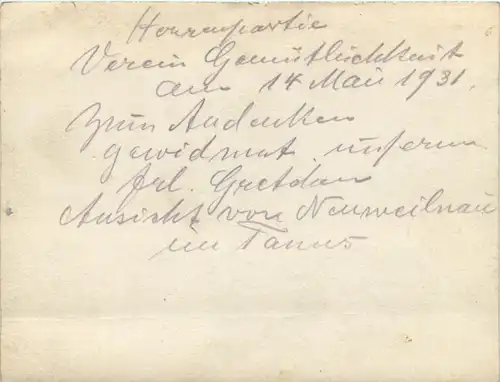 Herrenpartie
Verein Gemütlichkeit
am 14 Mai 1931.
Zum Andenken
gewidmet unserm
Frl. Gretchen
Ansicht von Neuweilnau
im Taunus